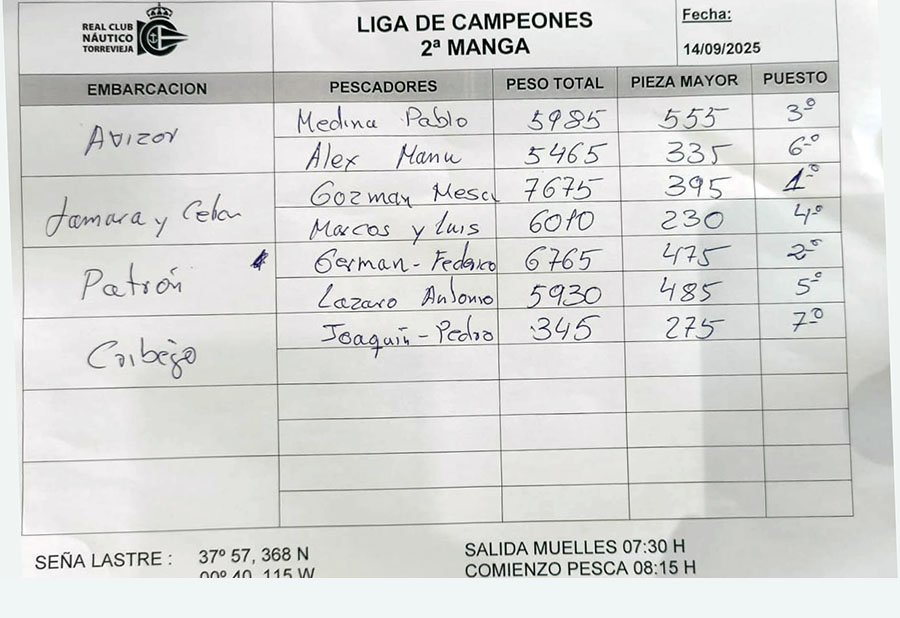 REAL CLUB
NÁUTICO
TORREVIEJA
LIGA DE CAMPEONES
2ª MANGA
Fecha:
14/09/2025
EMBARCACION PESCADORES PESO TOTAL PIEZA MAYOR PUESTO
Avizor Medina Pablo 5985 555 3º
Alex Manu 5465 335 6º
Tamara y Gozman Mesa 7675 395 1º
Marcos y Luis 6010 230 4º
Patrón German - Federico 6765 475 2º
Lazaro Antonio 5930 485 5º
Joaquín - Pedro 345 275 7º
SEÑA LASTRE : 37º 57, 368 N SALIDA MUELLES 07:30 H
00º 40, 115 W COMIENZO PESCA 08:15 H